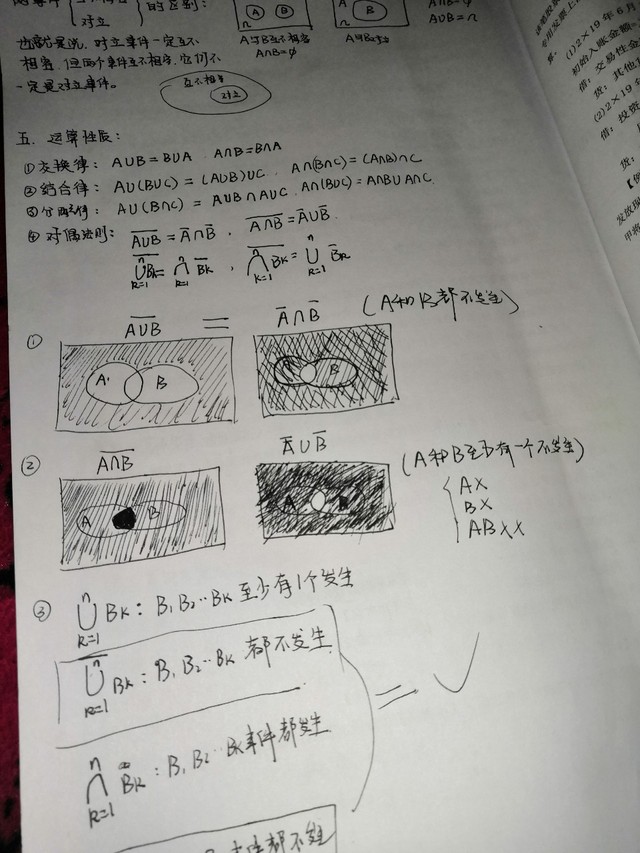 对立
的区别:
A B
B
A与B互不相容
A∩B=∅
A∪B=Ω
也就是说, 对立事件一定互不
相容, 但两个事件互不相容, 它们不
一定是对立事件。
互不相容
对立
五. 运算性质:
①交换律: A∪B=B∪A A∩B=B∩A
②结合律: A∪(B∪C)=(A∪B)∪C A∩(B∩C)=(A∩B)∩C
③分配律: A∪(B∩C)=A∪B∩A∪C A∩(B∪C)=A∩B∪A∩C.
④对偶法则: \overline{A∪B}=\overline{A}∩\overline{B}, \overline{A∩B}=\overline{A}∪\overline{B}.
\overline{\bigcup_{k=1}^{n} Bk}=\bigcap_{k=1}^{n} \overline{B}k, \overline{\bigcap_{k=1}^{n} Bk}=\bigcup_{k=1}^{n} \overline{B}k
① \overline{A∪B} = \overline{A}∩\overline{B} (A和B都不发生)
A B
B
② \overline{A∩B} \overline{A}∪\overline{B} (A和B至少有一个不发生)
A B
A
A×
B×
AB××
③ \bigcup_{k=1}^{n} Bk: B₁B₂…Bk 至少有1个发生
\overline{\bigcup_{k=1}^{n}} Bk: B₁B₂…Bk 都不发生
=
\bigcap_{k=1}^{n} Bk: B₁B₂…Bk事件都发生
都不发生
初始入账金额
借: 交易性金
贷: 其他
(2)2×19年
借: 投资
贷:
发放现
甲将